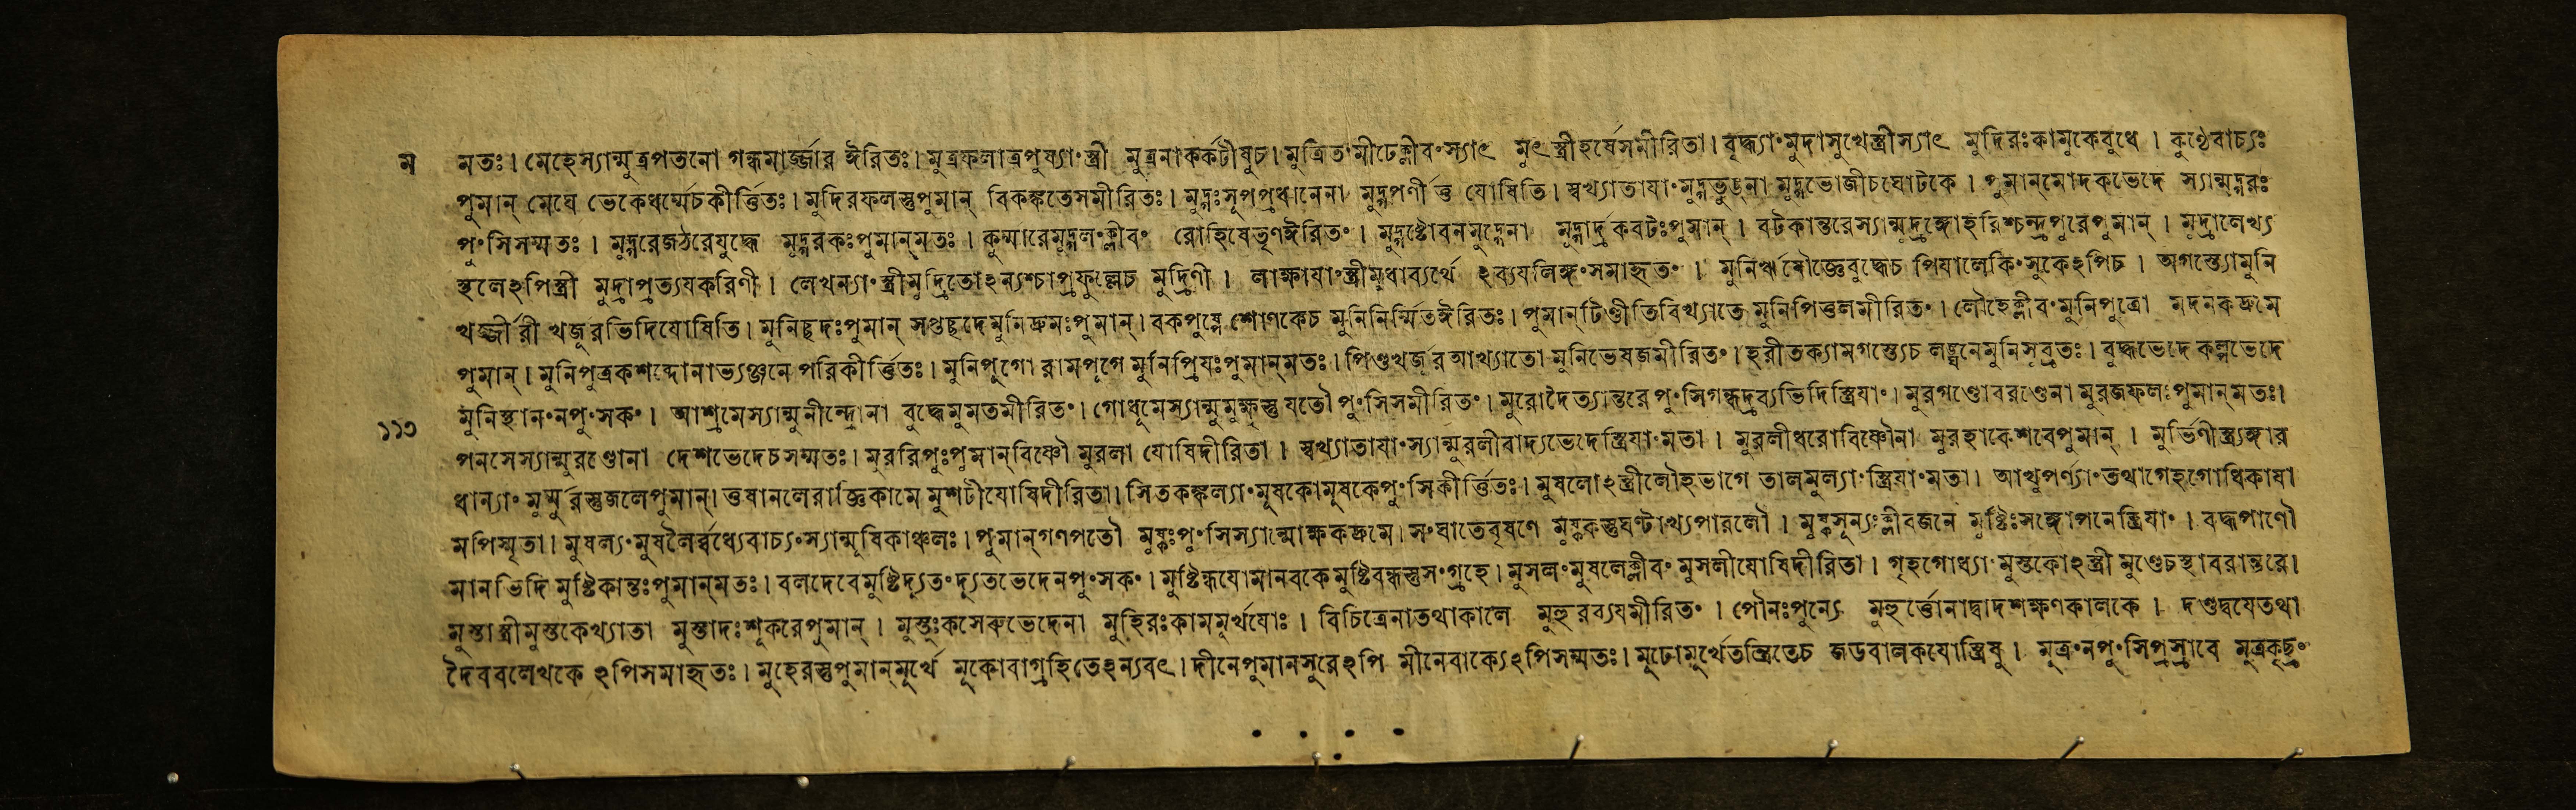 ম মতঃ। মেহেস্যান্মুত্রপতনো গন্ধমার্জ্জার ঈরিতঃ। মুত্রফলাত্রপুষ্যাং স্ত্রী মুত্রনাকর্কটীষুচ। মুত্রিতং মীঢেক্লীবং স্যাৎ মুৎ স্ত্রীহর্ষেসমীরিতা। বৃদ্ধ্যাং মুদাসুখেস্ত্রীস্যাৎ মুদিরঃকামুকেবুধে। কুণ্ঠেবাচ্যঃ
পুমান্ মেঘে ভেকেধর্ম্মেচকীর্ত্তিতঃ। মুদিরফলস্তুপুমান্ বিকঙ্কতেসমীরিতঃ। মুদ্গঃসূপপ্রধানেনা মুদ্গপর্ণীত্তু যোষিতি। স্বখ্যাতাযাং মুদ্গভুঙ্না মুদ্গভোজীচঘোটকে। পুমান্মোদকভেদে স্যান্মুদ্গরঃ
পুংসিসম্মতঃ। মুদ্গরেজঠরেযুদ্ধে মুদ্গরকঃপুমান্মতঃ। কুষ্মারেমুদ্গলংক্লীবং রোহিষেতৃণঈরিতং। মুদ্গষ্টোবনমুদ্গেনা মুদ্গার্দ্রকবটঃপুমান্। বটকান্তরেস্যান্মুদ্রঙ্গোহরিশ্চন্দ্রপুরেপুমান্। মুদ্রালেখ্য
স্থলেঽপিস্ত্রী মুদ্রাপ্রত্যযকরিণী। লেখন্যাং স্ত্রীমুদ্রিতোঽন্যশ্চাপ্রফুল্লেচ মুদ্রিণী। লাক্ষাযাং স্ত্রীমুধাব্যর্থে ঽব্যযলিঙ্গং সমাহৃতং। মুনিঋষৌজ্জেবুদ্ধেচ পিযালেকিংসুকেঽপিচ। অগস্ত্যোমুনি
খর্জ্জীরী খর্জূরভিদিযোষিতি। মুনিচ্ছদঃপুমান্ সপ্তচ্ছদেমুনিদ্রুমঃপুমান্। বকপুষ্পে শোণকেচ মুনিনির্ম্মিতঈরিতঃ। পুমান্টিণ্ডীতিবিখ্যাতে মুনিপিত্তলমীরিতং। লৌহেক্লীবং মুনিপুত্রো মদনকদ্রুমে
পুমান্। মুনিপুত্রকশব্দোনাভ্যঞ্জনে পরিকীর্ত্তিতঃ। মুনিপুগো রামপূগে মুনিপ্রিযঃপুমান্মতঃ। পিণ্ডখর্জূর আখ্যাতো মুনিভেষজমীরিতং। হরীতক্যামগস্ত্যেচ লঙ্ঘনেমুনিসুব্রতঃ। বুদ্ধভেদে কল্পভেদে
মুনিস্থানং নপুংসকং। আশ্রমেস্যান্মুনীন্দ্রোনা বুদ্ধেমুমতমীরিতং। গোধূমেস্যান্মুমুক্ষুস্তু যতৌ পুংসিসমীরিতং। মুরোদৈত্যান্তরে পুংসিগন্ধদ্রব্যভিদিস্ত্রিযাং। মুরগণ্ডোবরণ্ডেনা মুরজফলঃপুমান্মতঃ।
১১৩ পনসেস্যান্মুরণ্ডোনা দেশভেদেচসম্মতঃ। মুররিপুঃপুমান্বিষ্ণৌ মুরলা যোষিদীরিতা। স্বখ্যাতাযাং স্যান্মুরলীবাদ্যভেদেস্ত্রিযাং মতা। মুরলীধরোবিষ্ণৌনা মুরহাকেশবেপুমান্। মুর্ভিণীস্ত্র্যঙ্গার
ধান্যাং মুর্ম্মুরস্তুজলেপুমান্। তুষানলেরাজ্জিকামে মুশটীযোষিদীরিতা। সিতকঙ্কল্যাং মুষকোমুষকেপুংসিকীর্ত্তিতঃ। মুষলোঽস্ত্রীলৌহভাগে তালমূল্যাং স্ত্রিযাং মতা। আখুপর্ণ্যাং তথাগেহগোধিকাযা
মপিস্মৃতা। মুষল্যং মুষলৈর্ব্বধ্যেবাচ্যং স্যান্মুষিকাঞ্চলঃ। পুমান্গণপতৌ মুষ্কঃপুংসিস্যান্মোক্ষকদ্রুমে। সংঘাতেবৃষণে মুষ্ককস্তুঘণ্টাখ্যপারলৌ। মুষ্কসূন্যঃক্লীবজনে মুষ্টিঃসঙ্গোপনেস্ত্রিযাং। বদ্ধপাণৌ
মানভিদি মুষ্টিকান্তঃপুমান্মতঃ। বলদেবেমুষ্টিদ্যূতং দ্যূতভেদেনপুংসকং। মুষ্টিন্ধযোমানবকে মুষ্টিবন্ধস্তুসংগ্রহে। মুসলং মুষলেক্লীবং মুসলীযোষিদীরিতা। গৃহগোধ্যাং মুস্তকোঽস্ত্রী মুণ্ডেচস্থাবরান্তরে।
মুস্তাস্ত্রীমুস্তকেখ্যাতা মুস্তাদঃশূকরেপুমান্। মুস্তুঃকসেরুভেদেনা মুহিরঃকামমূর্খযোঃ। বিচিত্রেনাতথাকালে মুহুরব্যযমীরিতং। পৌনঃপুন্যে মুহূর্ত্তোনাদ্বাদশক্ষণকালকে। দণ্ডদ্বযেতথা
দৈববলেখকে ঽপিসমাহৃতঃ। মুহেরস্তুপুমান্মূর্খে মূকোবাগ্রহিতেঽন্যবৎ। দীনেপুমানসুরেঽপি মীনেবাক্যেঽপিসম্মতঃ। মূঢোমূর্খেতন্ত্রিতেচ জডবালকযোস্ত্রিষু। মূত্রং নপুংসিপ্রস্রাবে মূত্রকৃচ্ছ্রং